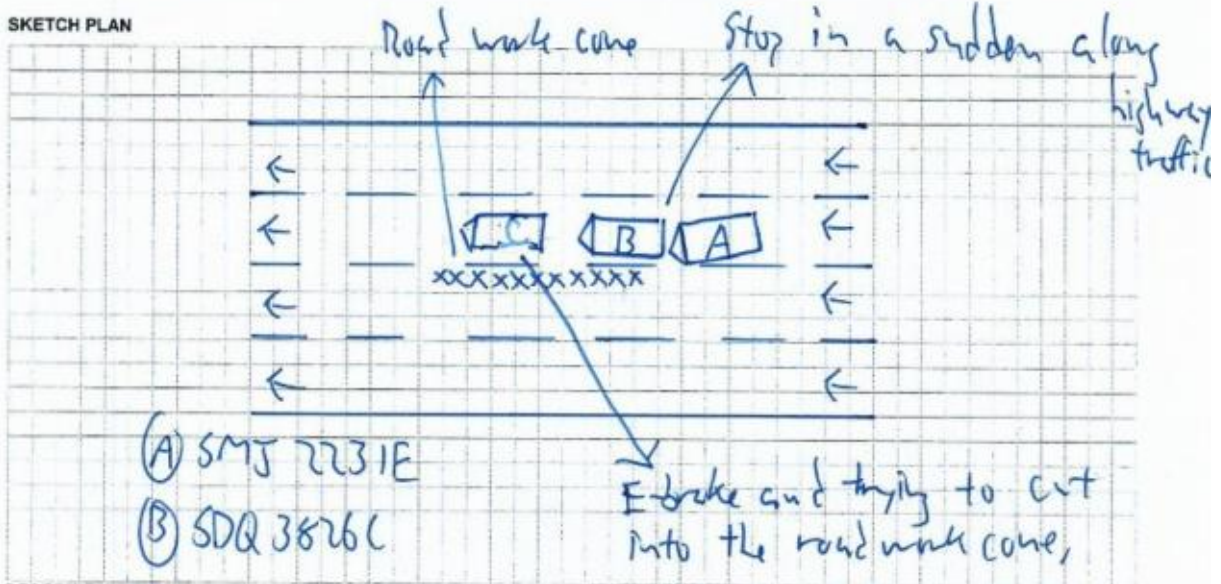 SKETCH PLAN
Road work cone
Stop in a sudden along
highway
traffic
C
B
A
xxxxxxxxxxxx
(A) SMJ 2231E
(B) SDQ 3826C
E-brake and trying to cut
into the road work cone,